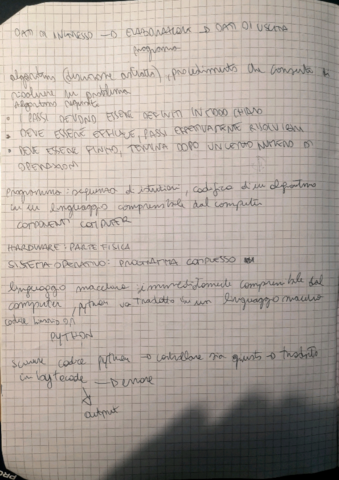 DATI DI INGRESSO → ELABORAZIONE → DATI DI USCITA
programma
algoritmo (), procedimento che consente di
risolvere un problema
algoritmo
• I PASSI DEVONO ESSERE DEFINITI IN MODO CHIARO
• DEVE ESSERE, PASSI EFFETTIVAMENTE
• DEVE ESSERE FINITO, TERMINA DOPO UN CERTO NUMERO DI
OPERAZIONI
Programma: sequenza di istruzioni, codifica di un algoritmo
in un linguaggio comprensibile dal computer
COMPONENTI COMPUTER
HARDWARE: PARTE FISICA
SISTEMA OPERATIVO: PROGRAMMA COMPLESSO
linguaggio macchina: immediatamente comprensibile dal
computer, python va tradotto in un linguaggio macchina
codice binario 0/1
PYTHON
scrivere codice python → controllare sia giusto → tradotto
in bytecode → errore
↓
output